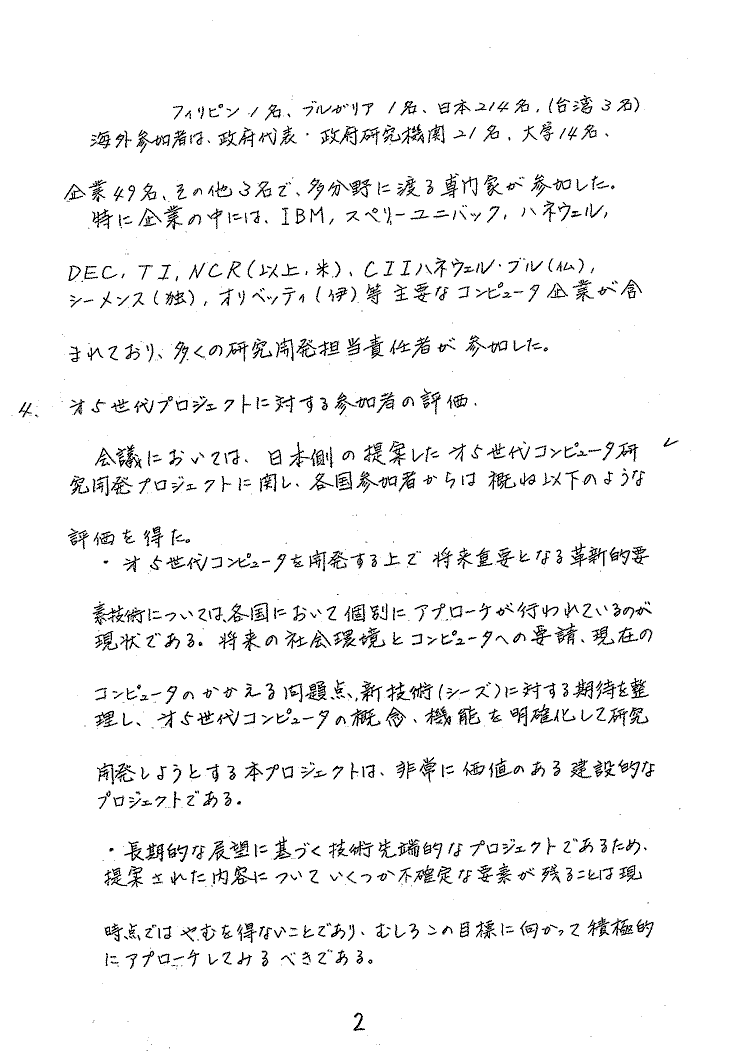 フィリピン1名、ブルガリア1名、日本214名、(台湾3名)
海外参加者は、政府代表・政府研究機関21名、大学14名、
企業49名、その他3名で、多分野に渡る専門家が参加した。
特に企業の中には、IBM,スペリーユニバック,ハネウェル,
DEC,TI,NCR(以上,米)、CIIハネウェル・ブル(仏),
シーメンス(独),オリベッティ(伊)等主要なコンピュータ企業が含
まれており、多くの研究開発担当責任者が参加した。
4. 才5世代プロジェクトに対する参加者の評価.
会議においては、日本側の提案した才5世代コンピュータ研
究開発プロジェクトに関し、各国参加者からは概ね以下のような
評価を得た。
・才5世代コンピュータを開発する上で将来重要となる革新的要
素技術については、各国において個別にアプローチが行われているのが
現状である。将来の社会環境とコンピュータへの要請、現在の
コンピュータのかかえる問題点、新技術(シーズ)に対する期待を整
理し、才5世代コンピュータの概念、機能を明確化して研究
開発しようとする本プロジェクトは、非常に価値のある建設的な
プロジェクトである。
・長期的な展望に基づく技術先端的なプロジェクトであるため、
提案された内容についていくつか不確定な要素が残ることは現
時点ではやむを得ないことであり、むしろこの目標に向かって積極的
にアプローチしてみるべきである。
2